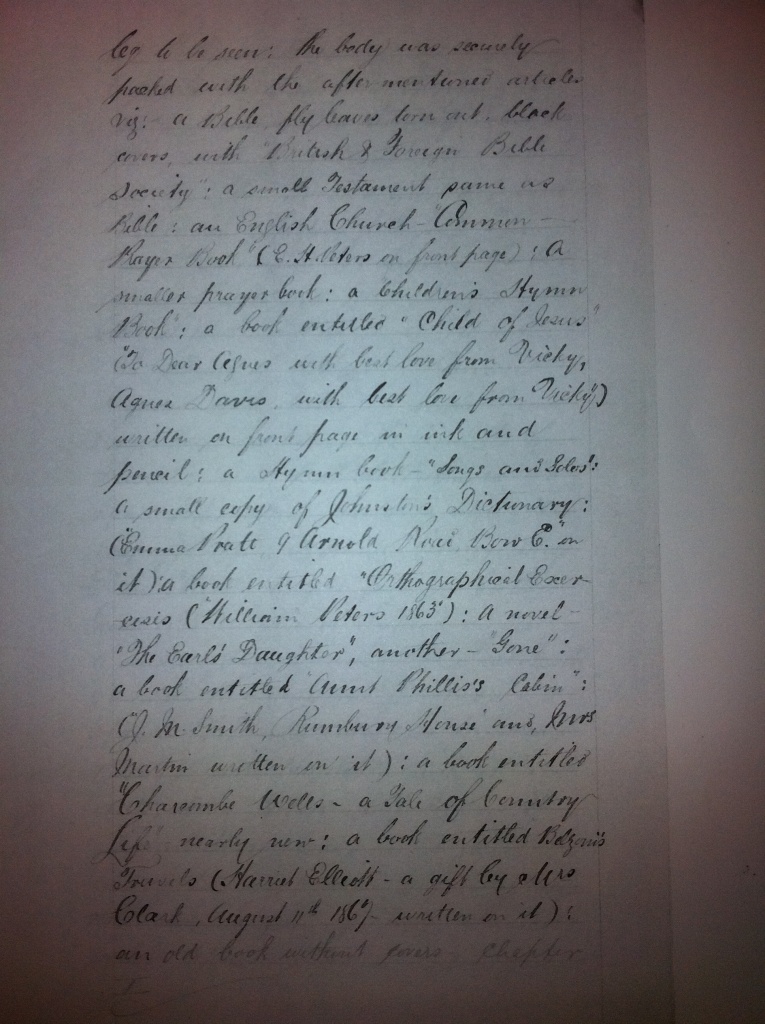 leg to be seen: the body was securely
packed with the aftermentioned articles
viz:- a Bible, fly leaves torn out, black
covers, with "British & Foreign Bible
Society": a small Testament same as
Bible: an English Church - "Common
Prayer Book" (E. H. Peters on front page): A
smaller prayer book: a Children's Hymn
Book: a book entitled "Child of Jesus"
"To Dear Agnes with best love from Vicky,
Agnes Davis, with best love from Vicky")
written on front page in ink and
pencil: a Hymn book - "Songs and Solos":
a small copy of Johnston's Dictionary:
(Emma Pratt, 9 Arnold Road, Bow E." on
it): a book entitled "Orthographical Exer-
cises (William Peters 1863"): a novel -
"The Earl's Daughter", another - "Gone":
a book entitled "Aunt Phillis's Cabin":
(J. M. Smith, Rumbury House and, Mrs
Martin written on it): a book entitled
"Charcombe Wells - a Tale of Country
Life" nearly new: a book entitled Belzoni's
Travels (Harriet Elliott - a gift by Mrs
Clark, August 11th written on it):
an old book without covers - Chapter
I